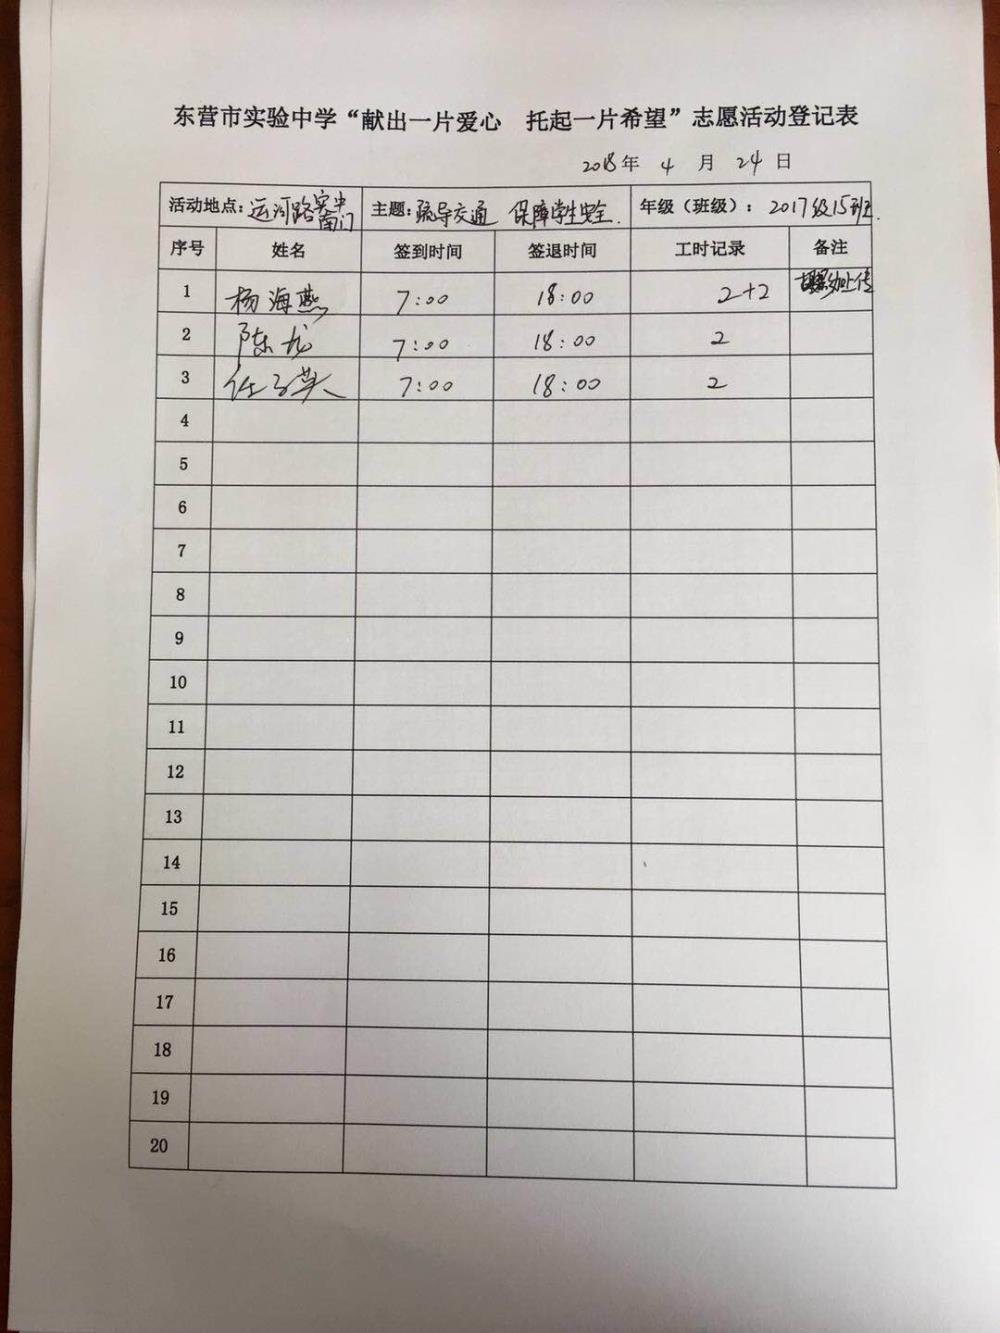 东营市实验中学“献出一片爱心 托起一片希望”志愿活动登记表
2018年 4 月 24 日
活动地点：运河路实中南门 主题：疏导交通 保障学生安全. 年级（班级）：2017级15班.
序号 姓名 签到时间 签退时间 工时记录 备注
1 杨海燕 7:00 18:00 2+2
2 陈龙 7:00 18:00 2
3 任子英 7:00 18:00 2
4
5
6
7
8
9
10
11
12
13
14
15
16
17
18
19
20